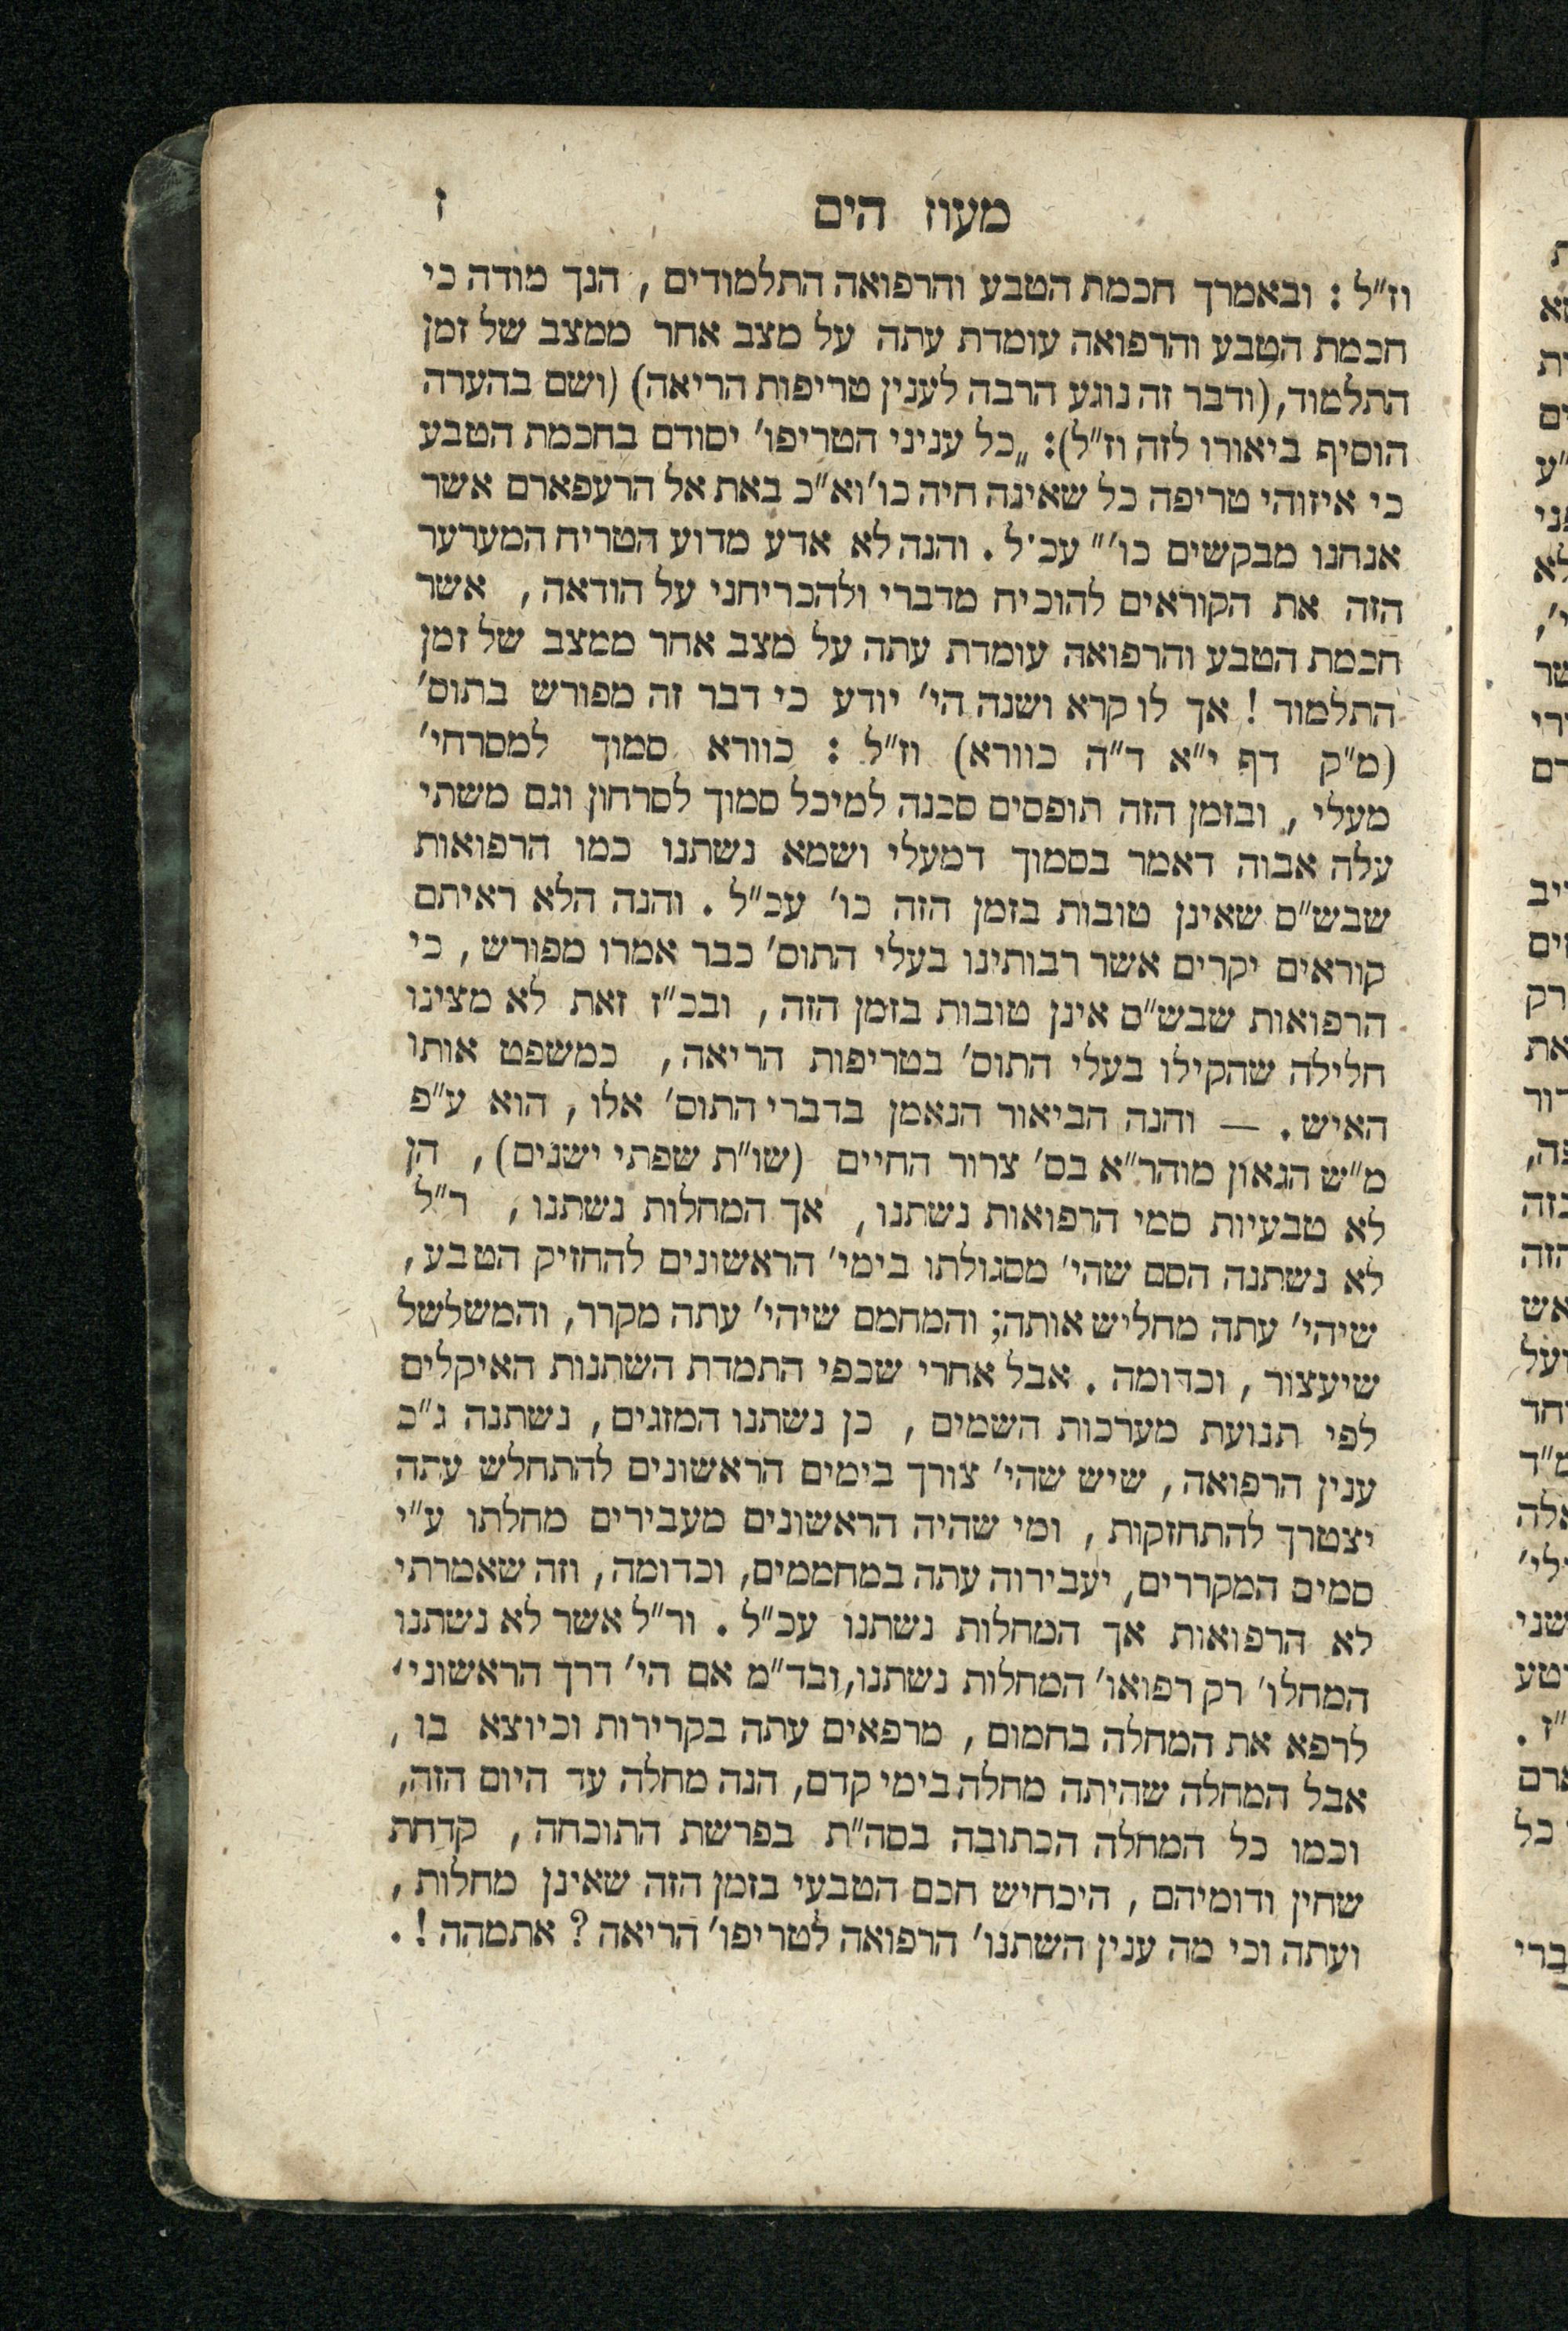 מעוז הים ז
וז"ל : ובאמרך חכמת הטבע והרפואה התלמודים , הנך מודה כי
חכמת הטבע והרפואה עומדת עתה על מצב אחר ממצב של זמן
התלמוד, (ודבר זה נוגע הרבה לענין טריפות הריאה) (ושם בהערה
הוסיף ביאורו לזה וז"ל): „כל עניני הטריפו' יסודם בחכמת הטבע
כי איזוהי טריפה כל שאינה חיה כו' וא"כ באת אל הרעפארם אשר
אנחנו מבקשים כו'" עכ"ל . והנה לא אדע מדוע הטריח המערער
הזה את הקוראים להוכיח מדברי ולהכריחני על הודאה , אשר
חכמת הטבע והרפואה עומדת עתה על מצב אחר ממצב של זמן
התלמוד ! אך לו קרא ושנה הי' יודע כי דבר זה מפורש בתוס'
(מ"ק דף י"א ד"ה כוורא) וז"ל : כוורא סמוך למסרחי'
מעלי , ובזמן הזה תופסים סכנה למיכל סמוך לסרחון וגם משתי
עלה אבוה דאמר בסמוך דמעלי ושמא נשתנו כמו הרפואות
שבש"ס שאינן טובות בזמן הזה כו' עכ"ל . והנה הלא ראיתם
קוראים יקרים אשר רבותינו בעלי התוס' כבר אמרו מפורש , כי
הרפואות שבש"ס אינן טובות בזמן הזה , ובכ"ז זאת לא מצינו
חלילה שהקילו בעלי התוס' בטריפות הריאה , כמשפט אותו
האיש . — והנה הביאור הנאמן בדברי התוס' אלו , הוא ע"פ
מ"ש הגאון מוהר"א בס' צרור החיים (שו"ת שפתי ישנים) , הן
לא טבעיות סמי הרפואות נשתנו , אך המחלות נשתנו , ר"ל
לא נשתנה הסם שהי' מסגולתו בימי' הראשונים להחזיק הטבע ,
שיהי' עתה מחליש אותה; והמחמם שיהי' עתה מקרר, והמשלשל
שיעצור , וכדומה . אבל אחרי שכפי התמדת השתנות האיקלים
לפי תנועת מערכות השמים , כן נשתנו המזגים , נשתנה ג"כ
ענין הרפואה , שיש שהי' צורך בימים הראשונים להתחלש עתה
יצטרך להתחזקות , ומי שהיה הראשונים מעבירים מחלתו ע"י
סמים המקררים, יעבירוה עתה במחממים, וכדומה , וזה שאמרתי
לא הרפואות אך המחלות נשתנו עכ"ל . ור"ל אשר לא נשתנו
המחלו' רק רפואו' המחלות נשתנו, ובד"מ אם הי' דרך הראשוני'
לרפא את המחלה בחמום , מרפאים עתה בקרירות וכיוצא בו ,
אבל המחלה שהיתה מחלה בימי קדם, הנה מחלה עד היום הזה,
וכמו כל המחלה הכתובה בסה"ת בפרשת התוכחה , קדחת
שחין ודומיהם , היכחיש חכם הטבעי בזמן הזה שאינן מחלות ,
ועתה וכי מה ענין השתנו' הרפואה לטריפו' הריאה ? אתמהה ! .